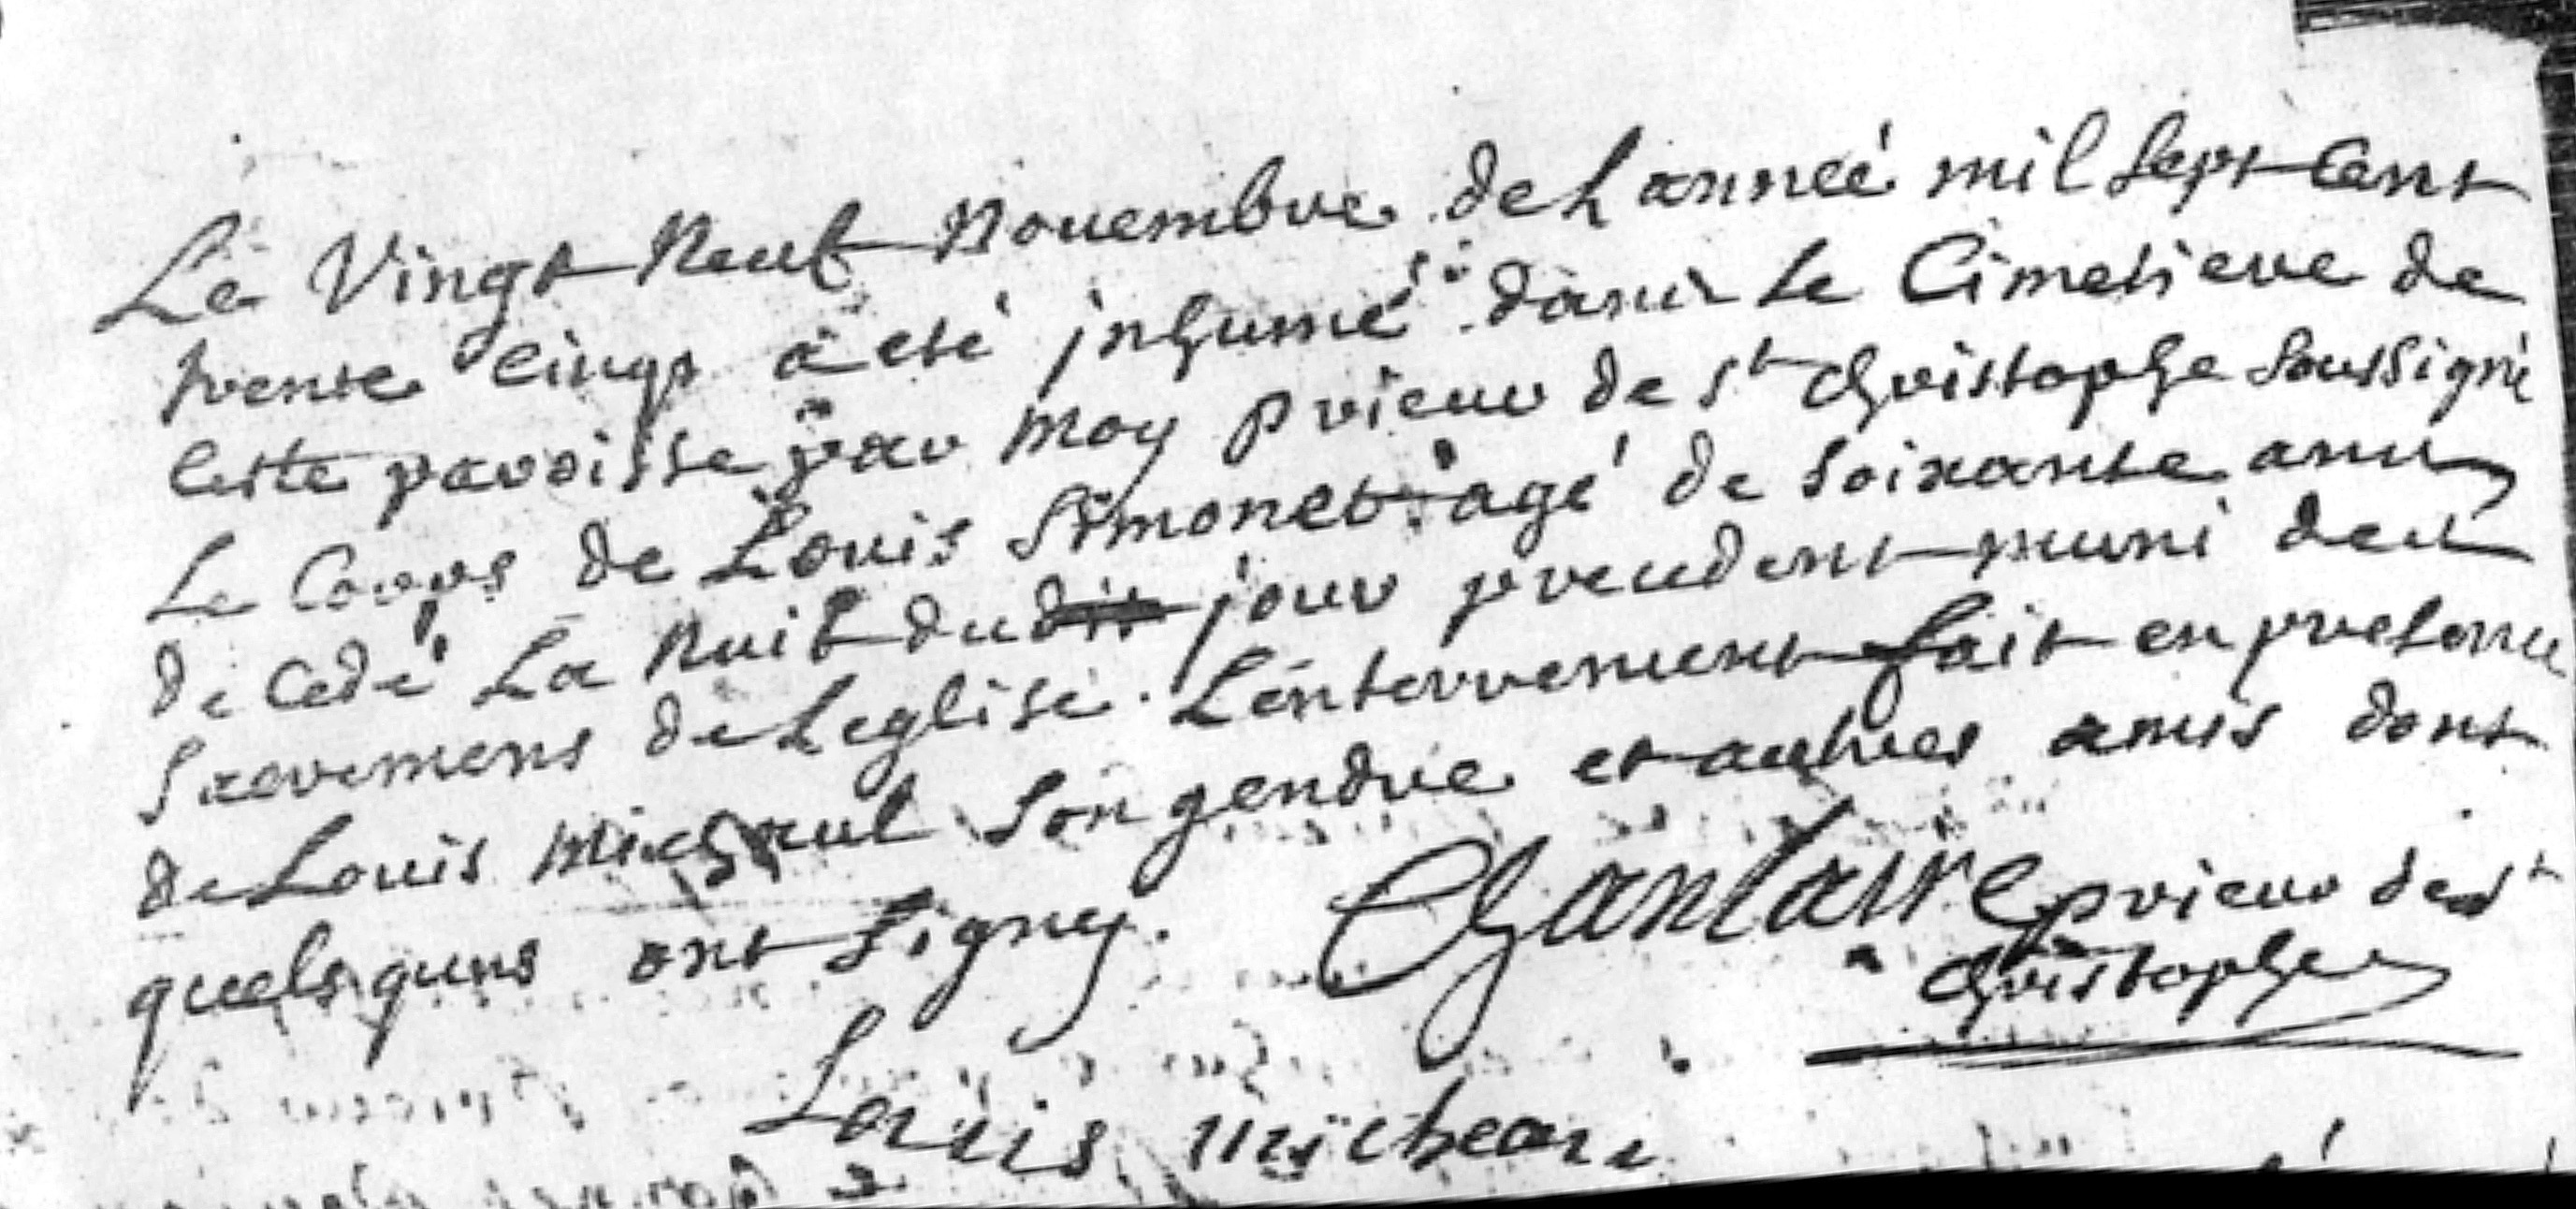 Le Vingt Neuf Novembre de Lannéé mil sept Cent
trente Cinqt à eté jnhumé dans le Cimetiere de
Cette paroisse par moy prieur de st Christophe soussigné
Le Corps de Louis Simonet agé de soixante ans
de Cedé La Nuit du jour precedent muni des
sacremens de Leglise. L'enterrement fait en presence
de Louis Michaul son gendre et autres amis dont
quelsquns ont signy. prieur de st
Christophe
Louis micheau